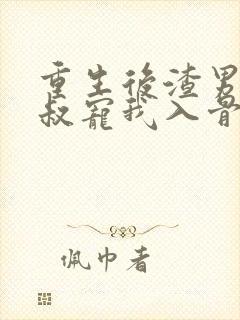 重生後渣男
叔寵我入骨
佩巾者